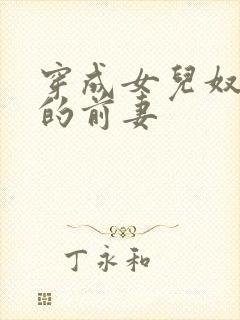 穿成女兒奴
的前妻
丁永和